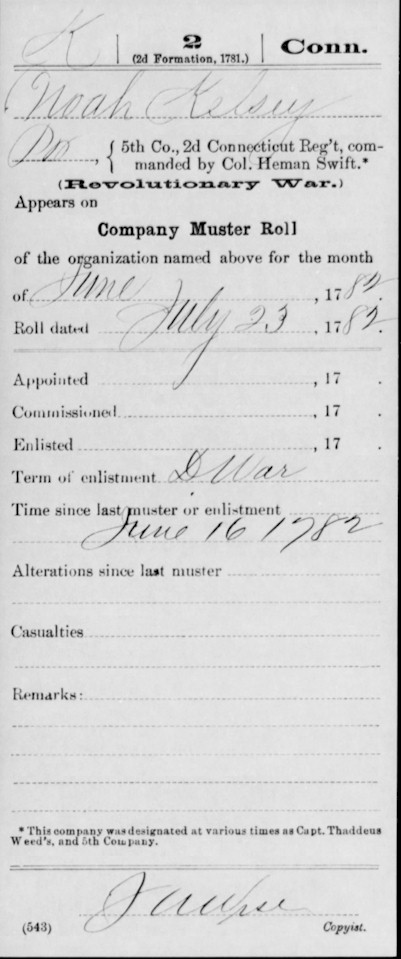 K | 2 | Conn.
(2d Formation, 1781.)
Noah Kelsey
5th Co., 2d Connecticut Reg't, com-
manded by Col. Heman Swift.*
(Revolutionary War.)
Appears on
Company Muster Roll
of the organization named above for the month
of June, 1782.
Roll dated July 23, 1782.
Appointed , 17 .
Commissioned , 17 .
Enlisted , 17 .
Term of enlistment D War
Time since last muster or enlistment
June 16 1782
Alterations since last muster
Casualties
Remarks:
* This company was designated at various times as Capt. Thaddeus
Weed's, and 5th Company.
(543) Copyist.